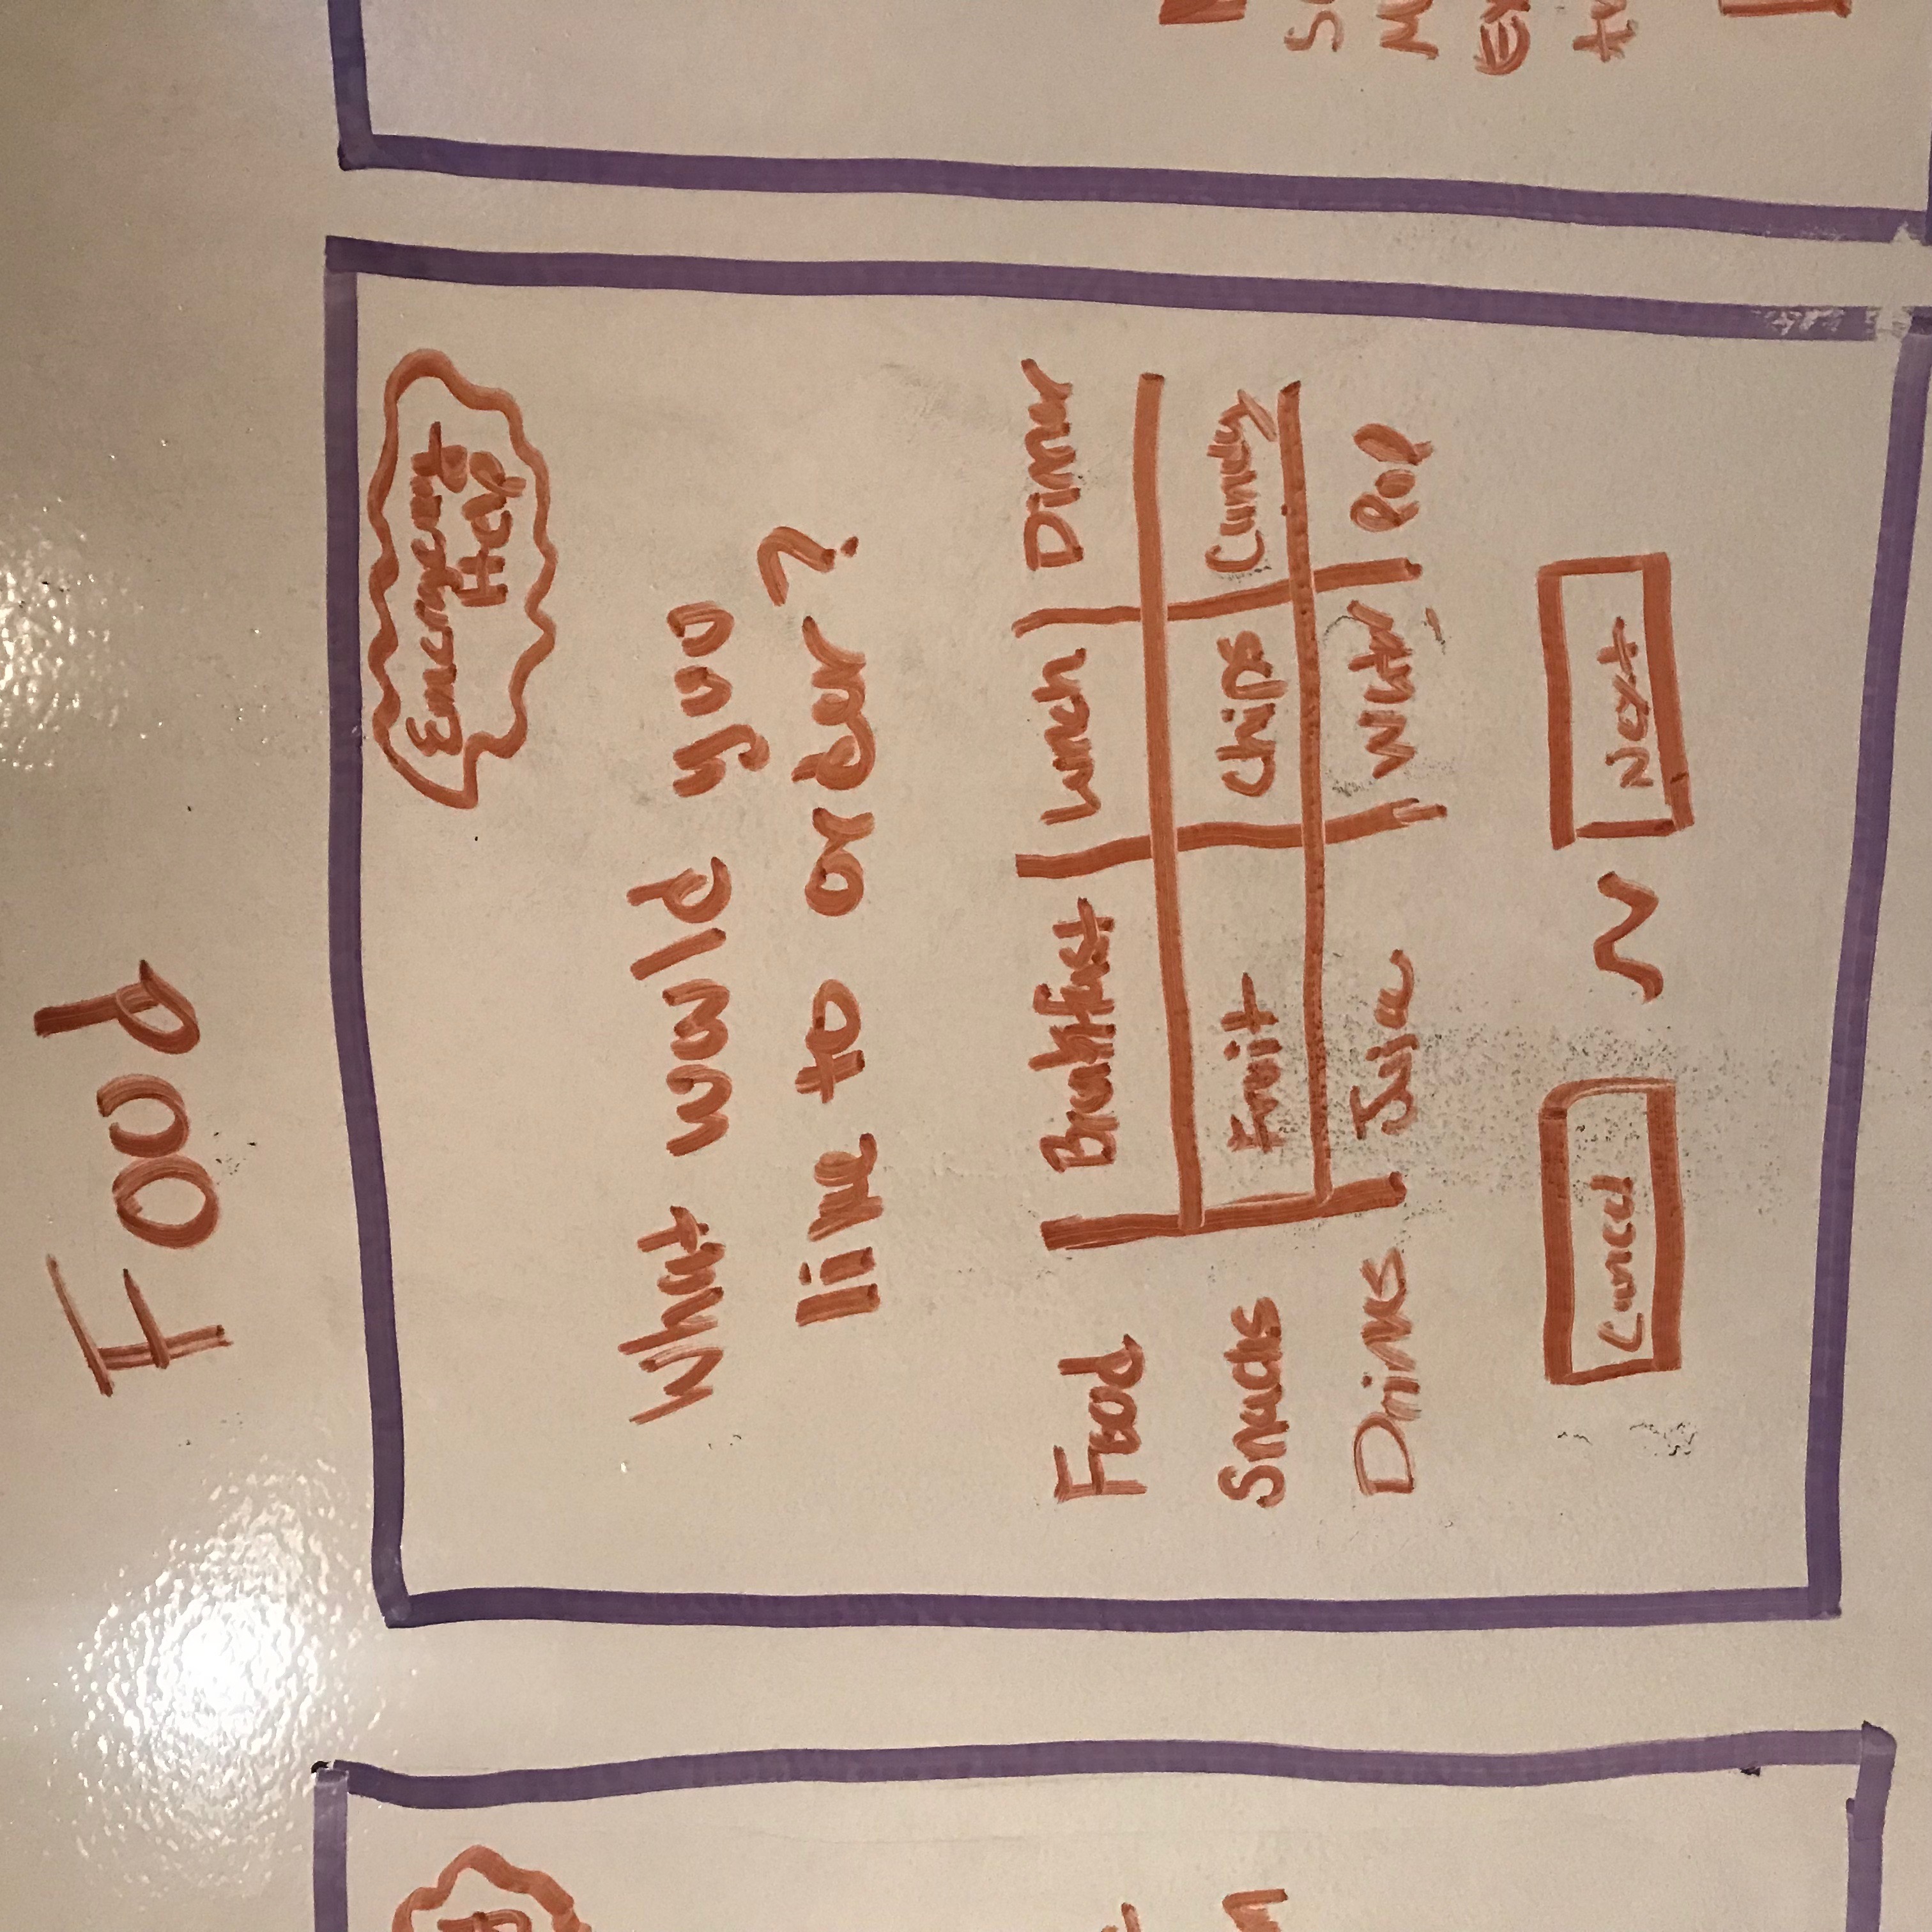 Food
Emergency
Help
What would you
like to order?
Food Breakfast Lunch Dinner
Snacks Fruit Chips Candy
Drinks Juice Water Pop
Cancel ~ Next